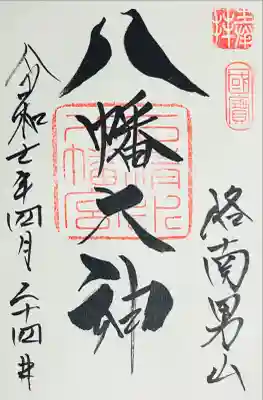 奉拝
國寶
洛南男山
八幡大神
石清水八幡宮
令和七年四月二十四日